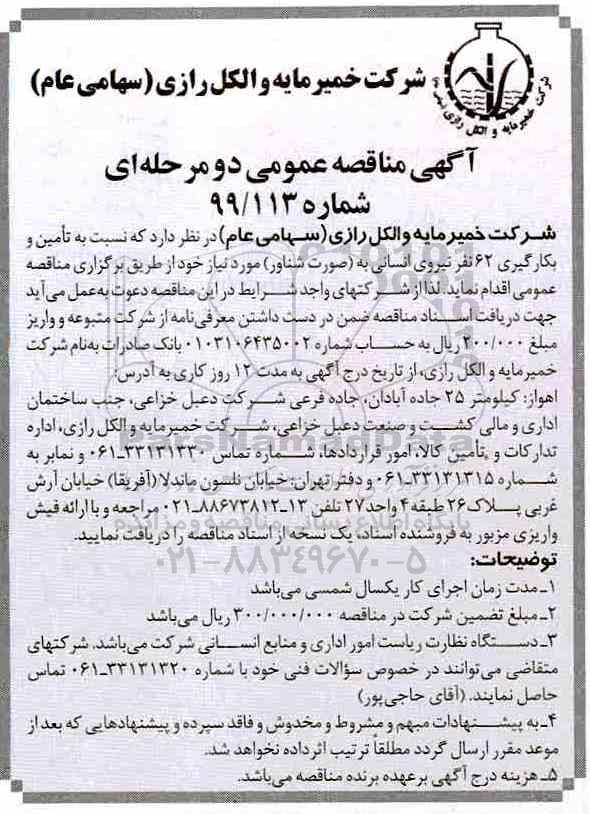 شرکت خمیرمایه و الکل رازی (سهامی عام)
شرکت خمیرمایه و الکل رازی
آگهی مناقصه عمومی دو مرحله‌ای
شماره ۹۹/۱۱۳
شرکت خمیرمایه والکل رازی (سهامی عام) در نظر دارد که نسبت به تأمین و
بکارگیری ۶۲ نفر نیروی انسانی به (صورت شناور) مورد نیاز خود از طریق برگزاری مناقصه
عمومی اقدام نماید. لذا از شرکتهای واجد شرایط در این مناقصه دعوت به‌عمل می‌آید
جهت دریافت اسناد مناقصه ضمن در دست داشتن معرفی‌نامه از شرکت متبوعه و واریز
مبلغ ۲۰۰/۰۰۰ ریال به حساب شماره ۰۱۰۳۱۰۶۴۳۵۰۰۲ بانک صادرات به‌نام شرکت
خمیرمایه و الکل رازی، از تاریخ درج آگهی به مدت ۱۲ روز کاری به آدرس:
اهواز: کیلومتر ۲۵ جاده آبادان، جاده فرعی شرکت دعبل خزاعی، جنب ساختمان
اداری و مالی کشت و صنعت دعبل خزاعی، شرکت خمیرمایه و الکل رازی، اداره
تدارکات و تأمین کالا، امور قراردادها، شماره تماس ۳۳۱۳۱۳۳۰-۰۶۱ و نمابر به
شماره ۳۳۱۳۱۳۱۵-۰۶۱ و دفتر تهران: خیابان نلسون ماندلا (آفریقا) خیابان آرش
غربی پلاک ۲۶ طبقه ۴ واحد ۲۷ تلفن ۱۳-۸۸۶۷۳۸۱۲-۰۲۱ مراجعه و با ارائه فیش
واریزی مزبور به فروشنده اسناد، یک نسخه از اسناد مناقصه را دریافت نمایید.
توضیحات:
۱ـ مدت زمان اجرای کار یکسال شمسی می‌باشد
۲ـ مبلغ تضمین شرکت در مناقصه ۳۰۰/۰۰۰/۰۰۰ ریال می‌باشد
۳ـ دستگاه نظارت ریاست امور اداری و منابع انسانی شرکت می‌باشد. شرکتهای
متقاضی می‌توانند در خصوص سؤالات فنی خود با شماره ۳۳۱۳۱۳۲۰-۰۶۱ تماس
حاصل نمایند. (آقای حاجی‌پور)
۴ـ به پیشنهادات مبهم و مشروط و مخدوش و فاقد سپرده و پیشنهادهایی که بعد از
موعد مقرر ارسال گردد مطلقاً ترتیب اثر داده نخواهد شد.
۵ـ هزینه درج آگهی برعهده برنده مناقصه می‌باشد.
ParsNamadData
پایگاه اطلاع رسانی مناقصه و مزایده
۰۲۱-۸۸۳۴۹۶۷۰-۵